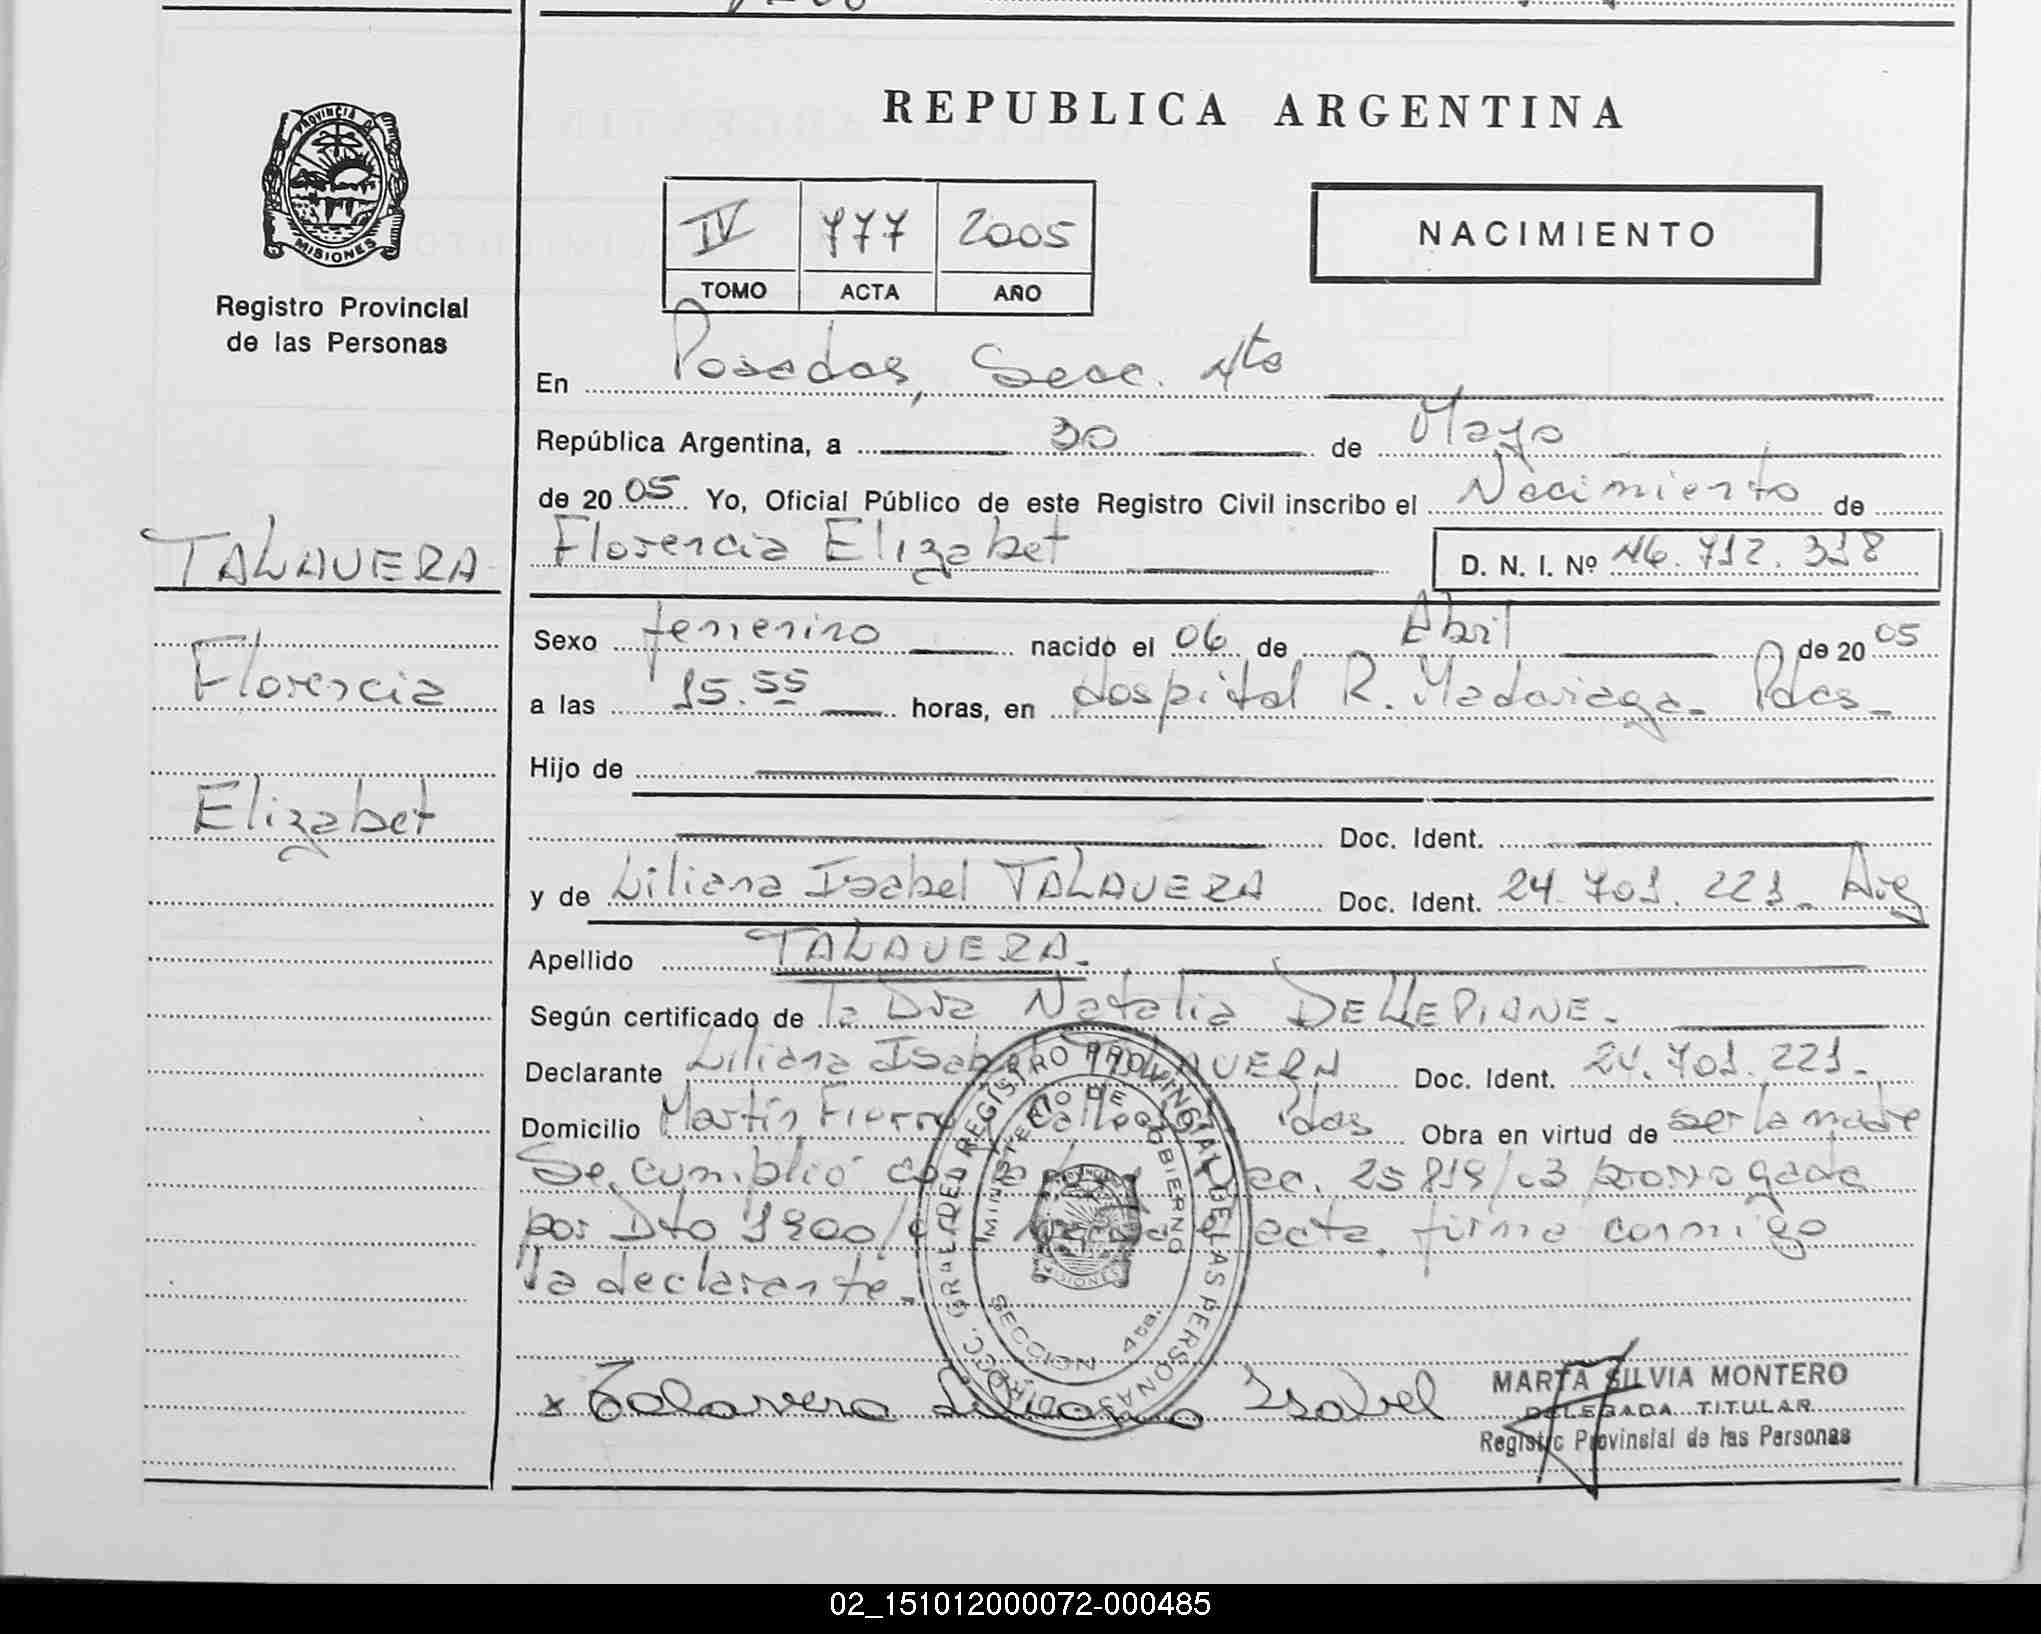 REPUBLICA ARGENTINA
PROVINCIA D
MISIONES
Registro Provincial
de las Personas
IV 777 2005
TOMO ACTA AÑO
NACIMIENTO
En Posadas, Secc. 4ta
República Argentina, a 30 de Mayo
de 2005 Yo, Oficial Público de este Registro Civil inscribo el Nacimiento de
Florencia Elizabet D. N. I. Nº 46.712.318
TALAVERA
Florencia
Elizabet
Sexo femenino nacido el 06 de Abril de 2005
a las 15.55 horas, en Hospital R. Madariaga - Pdas -
Hijo de
Doc. Ident.
y de Liliana Isabel TALAVERA Doc. Ident. 24.701.221 - Arg
Apellido TALAVERA -
Según certificado de la Dra Natalia DELLEPIANE -
Declarante Liliana Isabel TALAVERA Doc. Ident. 24.701.221 -
Domicilio Martín Fierro Pdas Obra en virtud de ser la madre
Se cumplió 25819/03 prorrogada
por Dto 1900/ acta, firma conmigo
la declarante -
DIRECC. GRAL. DEL REGISTRO PROVINCIAL DE LAS PERSONAS
MINISTERIO DE GOBIERNO
MISIONES
SECCION 4ta.
x Talavera Liliana Isabel
MARTA SILVIA MONTERO
DELEGADA TITULAR
Registro Provincial de las Personas
02_151012000072-000485